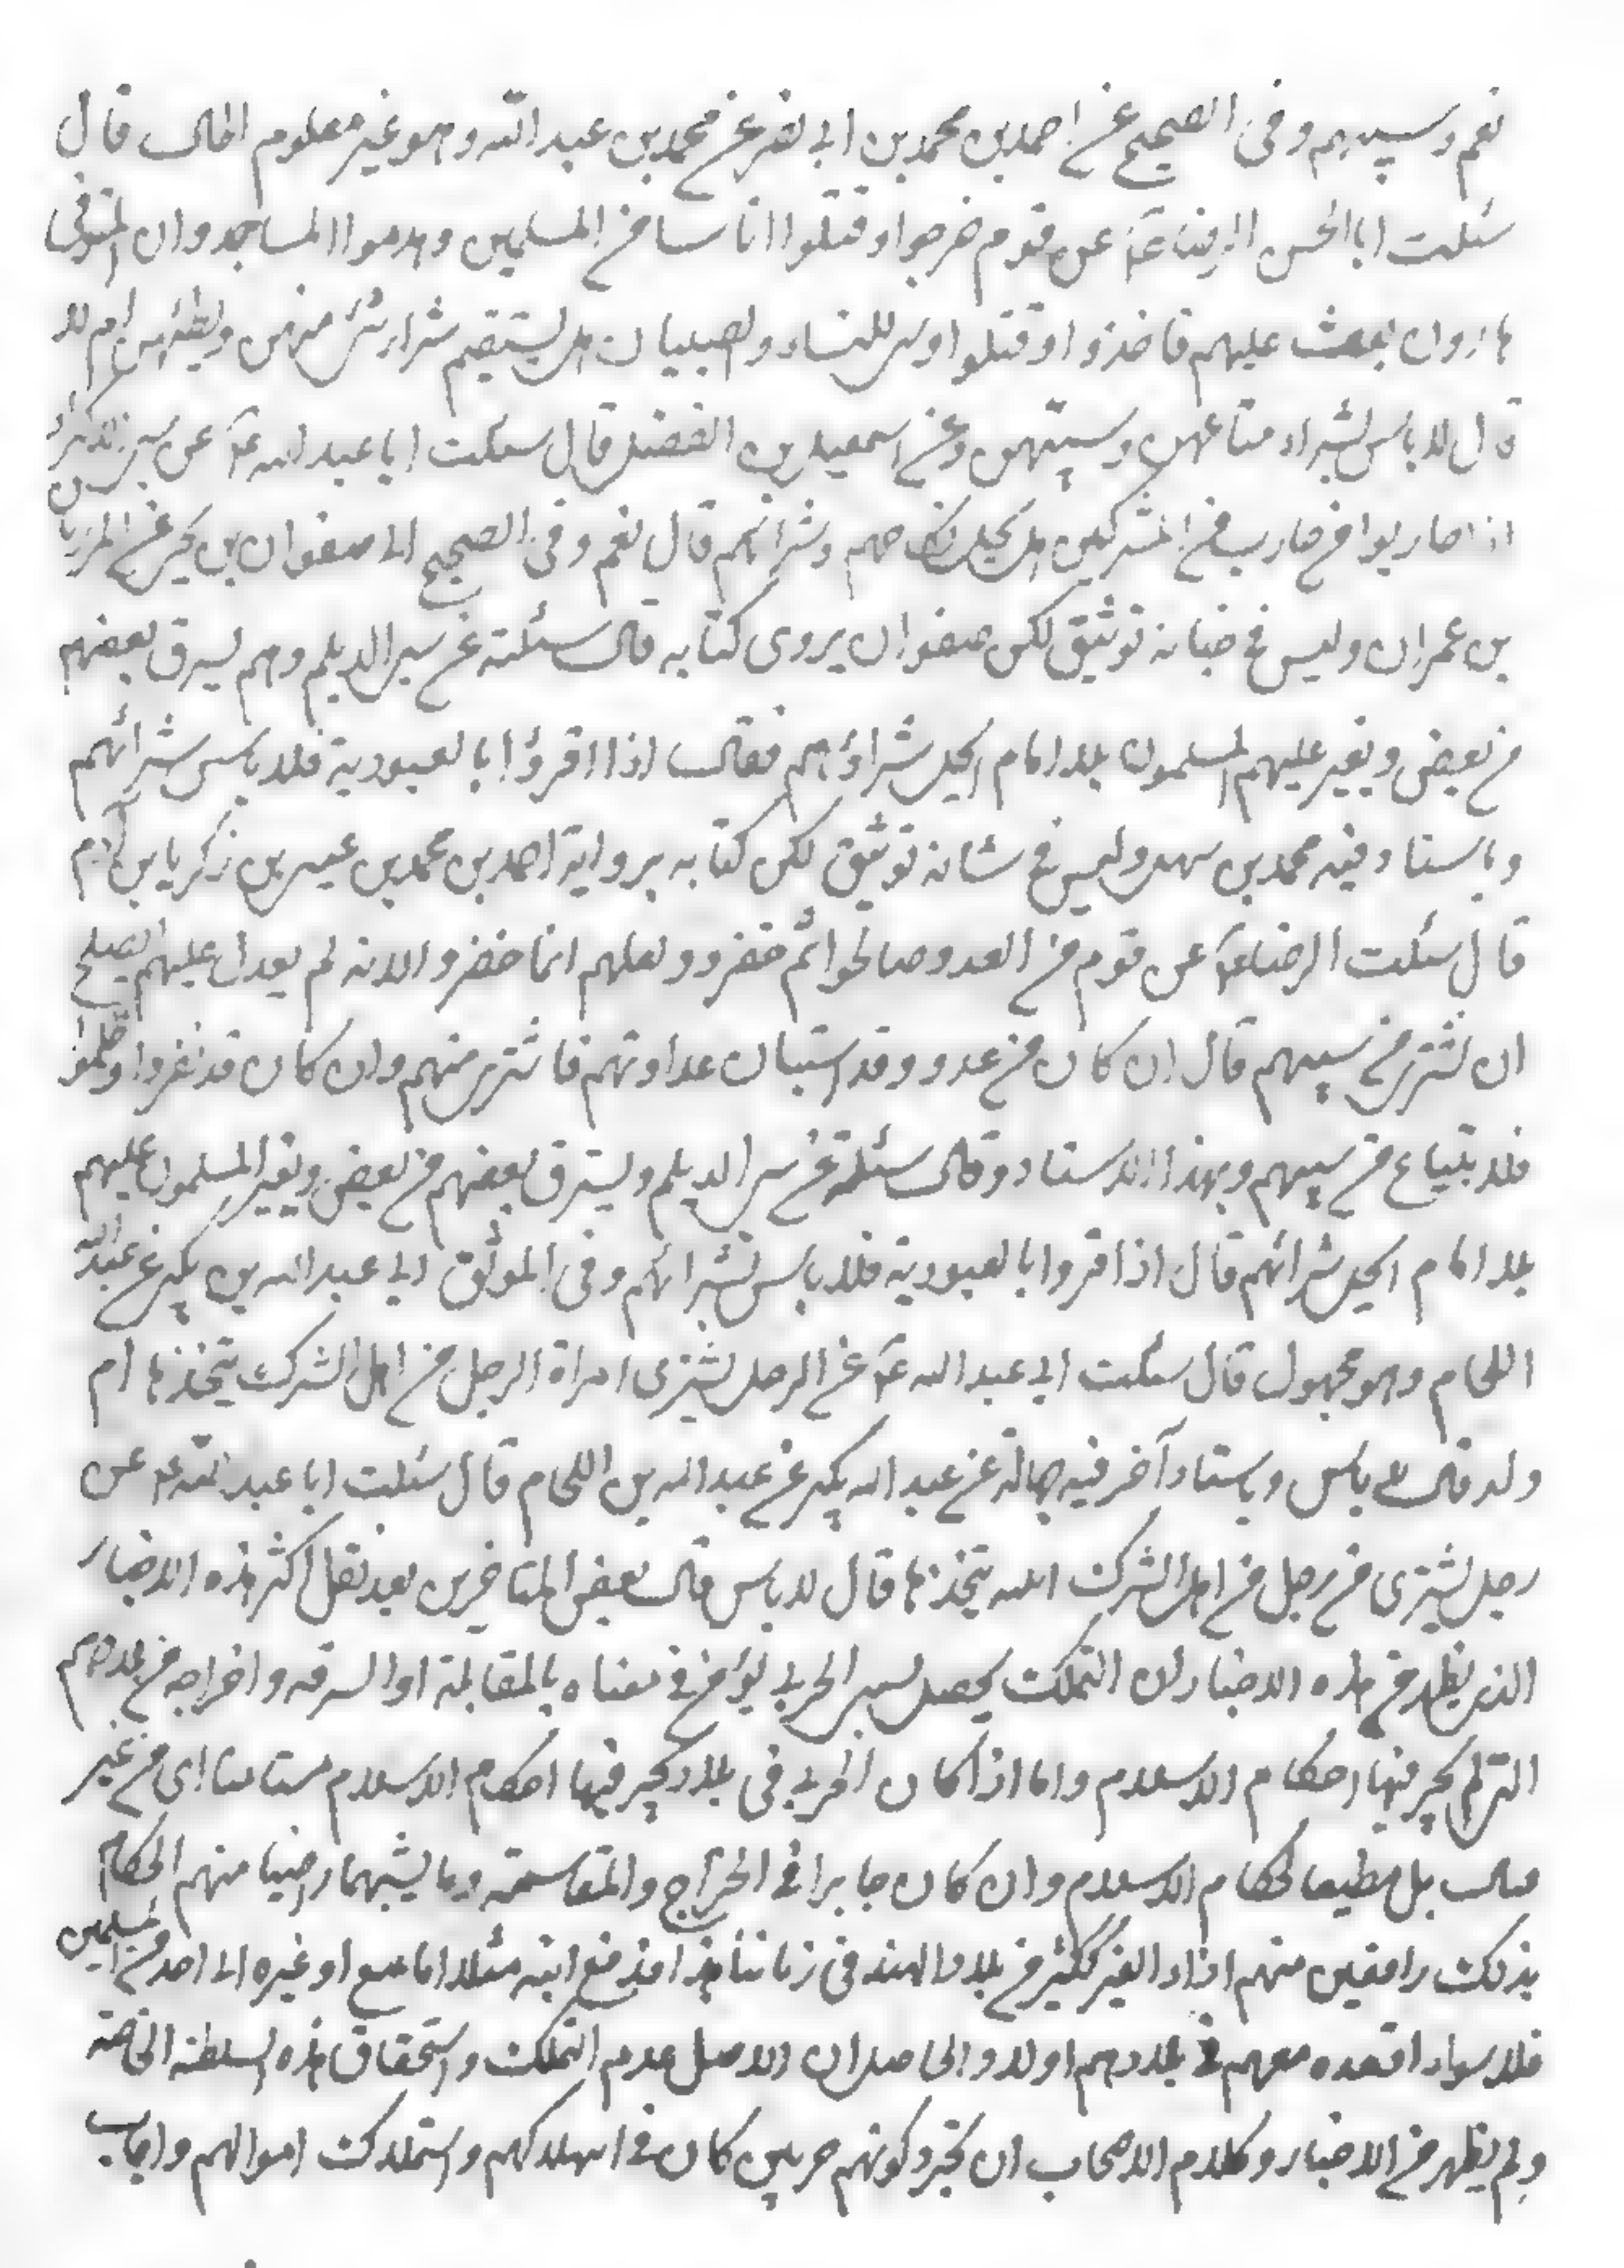 نعم وسبيهم وفى الصحيح عن احمد بن محمد بن ابى نصر عن محمد بن عبد اللّه وهو غير معلوم الحال قال
سئلت ابا الحسن الرضا عن قوم خرجوا وقتلوا اناسا من المسلمين وهدموا المساجد وان المتوفى
هارون بعث عليهم فاخذوا وقتلوا وسبى النساء والصبيان هل يستقيم شراء شئ منهن ويطئهن ام لا
قال لا باس بشراء متاعهن وسبيهن وعن اسمعيل بن الفضل قال سئلت ابا عبد الله عن سبى الاكراد
اذا حاربوا من حارب من المشركين هل يحل نكاحهم وشرائهم قال نعم وفى الصحيح الى صفوان بن يحيى عن المرزبان
بن عمران وليس فى شانه توثيق لكن صفوان يروى كتابه قال سئلته عن سبى الديلم وهم يسرق بعضهم
من بعض ويغير عليهم المسلمون بلا امام ايحل شراؤهم فقال اذا اقروا بالعبودية فلا باس بشرائهم
وباسناد فيه محمد بن سهل وليس فى شانه توثيق لكن كتابه برواية احمد بن محمد بن عيسى بن زكريا بن آدم
قال سئلت الرضا عن قوم من العدو صالحوا ثم خفروا ولعلهم انما خفروا لانه لم يعدل عليهم ايصلح
ان نشترى من سبيهم قال ان كان من عدو وقد استبان عداوتهم فاشتر منهم وان كان قد نفروا وظلموا
فلا تبتاع من سبيهم وبهذا الاسناد وقال سئلته عن سبى الديلم ويسترق بعضهم من بعض ويغير المسلمون عليهم
بلا امام ايحل شرائهم قال اذا اقروا بالعبودية فلا باس بشرائهم وفى الموثق الى عبد الله بن بكير عن عبد الله
اللحام وهو مجهول قال سئلت ابى عبد الله عن الرجل يشترى امراة الرجل من اهل الشرك يتخذها ام
ولد قال لا باس وباسناد آخر فيه جهالة عن عبد الله بكير عن عبد الله بن اللحام قال سئلت ابا عبد اللّه عن
رجل يشترى من رجل من اهل الشرك ابنته يتخذها قال لا باس قال بعض المتاخرين بعد نقل اكثر هذه الاخبار
الذى يظهر من هذه الاخبار ان التملك يحصل بسبى الحربى او من فى معناه بالمقابلة او السرقه واخراجه من بلادهم
التى لم يجر فيها احكام الاسلام واما اذا كان الحربى فى بلاد يجر فيها احكام الاسلام مستامنا اى من غير
بل مطيعا لحكام الاسلام وان كان جابرا فى الخراج والمقاسمة وما يشبهما راضيا منهم الحكام
بذلك رافعين منهم اذاء الغير ككثير من بلاد الهند فى زماننا هذا فدفع ابنه مثلا اما ببيع او غيره الى احد من المسلمين
فلا سواء اقعده معهم فى بلادهم اولا والحاصل ان الاصل عدم التملك واستحقاق هذه السلطنة الخاصة
ولم يظهر من الاخبار وكلام الاصحاب ان تجرد كونهم حربيين كان فى استهلاكهم واستملاك اموالهم وايجاب